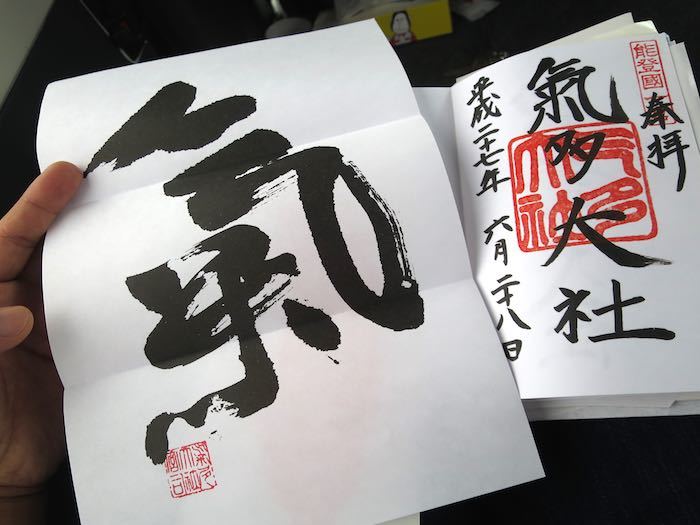 氣
能登國
奉拝
氣多大社
平成二十七年 六月二十八日